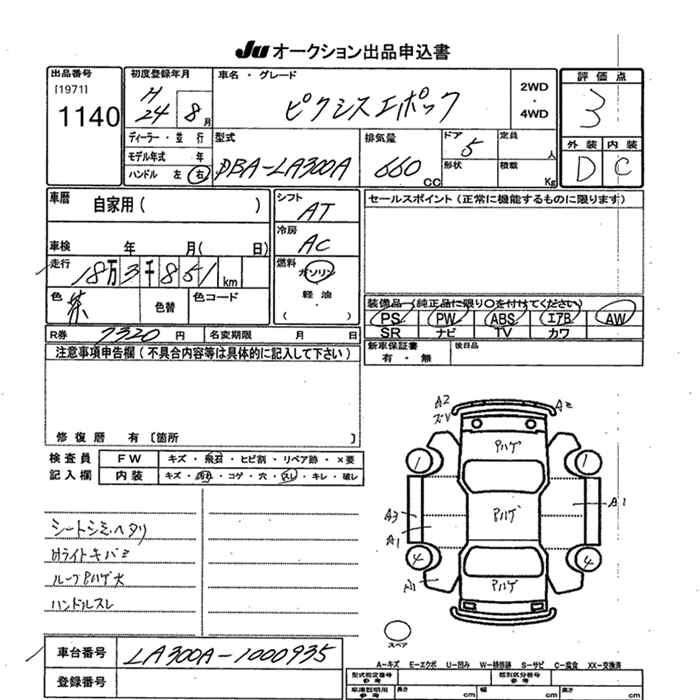 Ju オークション出品申込書
出品番号
[1971]
1140
初度登録年月
H24 8月
車名・グレード
ピクシスエポック
2WD
・
4WD
評価点
3
外装 内装
D C
ディーラー・並行
モデル年式 年
ハンドル 左 右
型式
DBA-LA300A
排気量
660 CC
ドア 5
形状
定員 人
積載 Kg
車歴
自家用( )
車検 年 月( 日)
走行 18万3千851km
色 茶
色替
色コード
シフト
AT
冷房
AC
燃料
ガソリン
軽油
( )
セールスポイント(正常に機能するものに限ります)
装備品(純正品に限り〇を付けてください)
PS PW ABS エアB AW
SR ナビ TV カワ
新車保証書
有・無
後日品
R券 7320円
名変期限 月 日
注意事項申告欄(不具合内容等は具体的に記入して下さい)
修復歴 有〔箇所 〕
検査員
記入欄
FW キズ・飛石・ヒビ割・リペア跡・×要
内装 キズ・汚れ・コゲ・穴・スレ・キレ・破レ
シートシミ、ヘタリ
Hライトキバミ
ルーフPハゲ大
ハンドルスレ
A2
ズレ
A2
Pハゲ
1
1
A3
A1
Pハゲ
A1
4
4
A1
Pハゲ
スペア
車台番号 LA300A-1000935
登録番号
A-キズ E-エクボ U-凹み W-補修跡 S-サビ C-腐食 XX-交換済
型式指定番号
参考
類別区分番号
参考
車庫証明用
参考
長さ cm
幅 cm
高さ cm